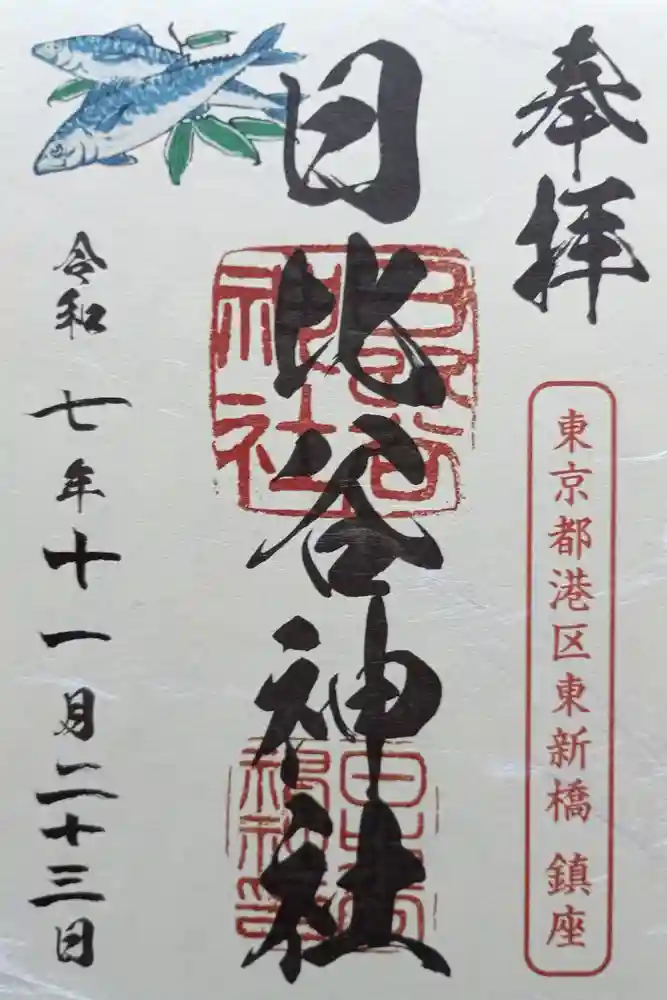 奉拝
東京都港区東新橋 鎮座
日比谷神社
日比谷神社
令和七年十一月二十三日